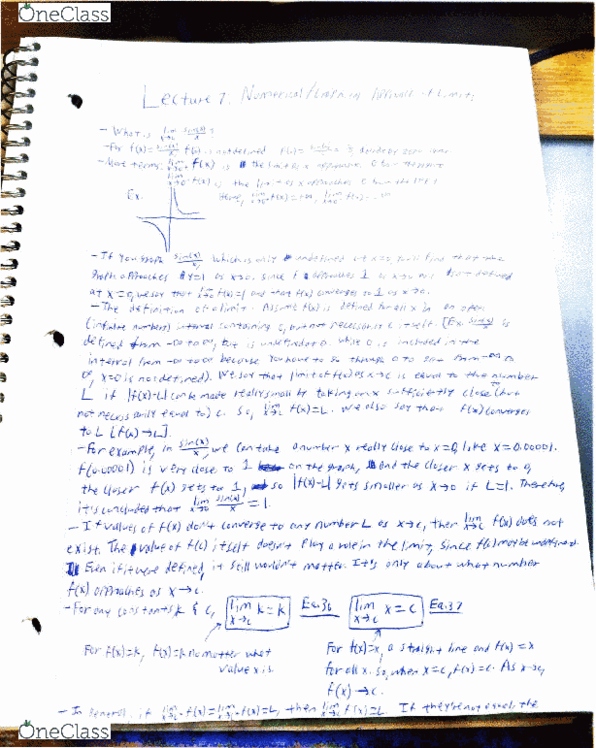 OneClass
Lecture 7. Numerical/Graphical Approach of Limits
- What is lim x→0 sin(x)/x?
- For f(x) = sin(x)/x, f(0) is not defined
- Next terms: lim x→c+ f(x) is the limit as x approaches c from the right
lim x→c- f(x) is the limit as x approaches c from the left
Ex. Here,
- If you graph sin(x)/x, which is only undefined at x=0, you'll find that the
graph approaches y=1 as x→0. Since f approaches 1 as x→0 but isn't defined
at x=0, we say that lim x→0 f(x)=1 and that f(x) converges to 1 as x→0.
- The definition of a limit: Assume f(x) is defined for all x in an open
(infinite numbers) interval containing c, but not necessarily c itself. [Ex. sin(x)/x is
defined from -∞ to ∞, but is undefined at 0. While 0 is included in the
interval from -∞ to ∞ because you have to go through 0 to go from -∞ to
∞, x=0 is not defined]. We say that limit of f(x) as x→c is equal to the number
L if |f(x)-L| can be made really small by taking an x sufficiently close (but
not necessarily equal to) c. So, lim x→c f(x)=L. We also say that f(x) converges
to L [f(x)→L].
- For example, in sin(x)/x, we can take a number x really close to x=0, like x=0.00001.
f(0.00001) is very close to 1 on the graph, and the closer x gets to 0,
the closer f(x) gets to 1, so |f(x)-L| gets smaller as x→0 if L=1. Therefore,
it is concluded that lim x→0 sin(x)/x = 1.
- If values of f(x) don't converge to any number L as x→c, then lim x→c f(x) does not
exist. The value of f(c) itself doesn't play a role in the limit, since f(c) may be undefined
Even if it were defined, it still wouldn't matter. It's only about what number
f(x) approaches as x→c.
- For any constants k & c, lim x→c k=k Eq.36 lim x→c x=c Eq.37
For f(x)=k, f(x)=k no matter what
value x is.
For f(x)=x, a straight line and f(x)=x
for all x. So, when x=c, f(x)=c. As x→c,
f(x)→c.
- In general, if lim x→c- f(x)=lim x→c+ f(x)=L, then lim x→c f(x)=L. If they're not equal, the
OneClass